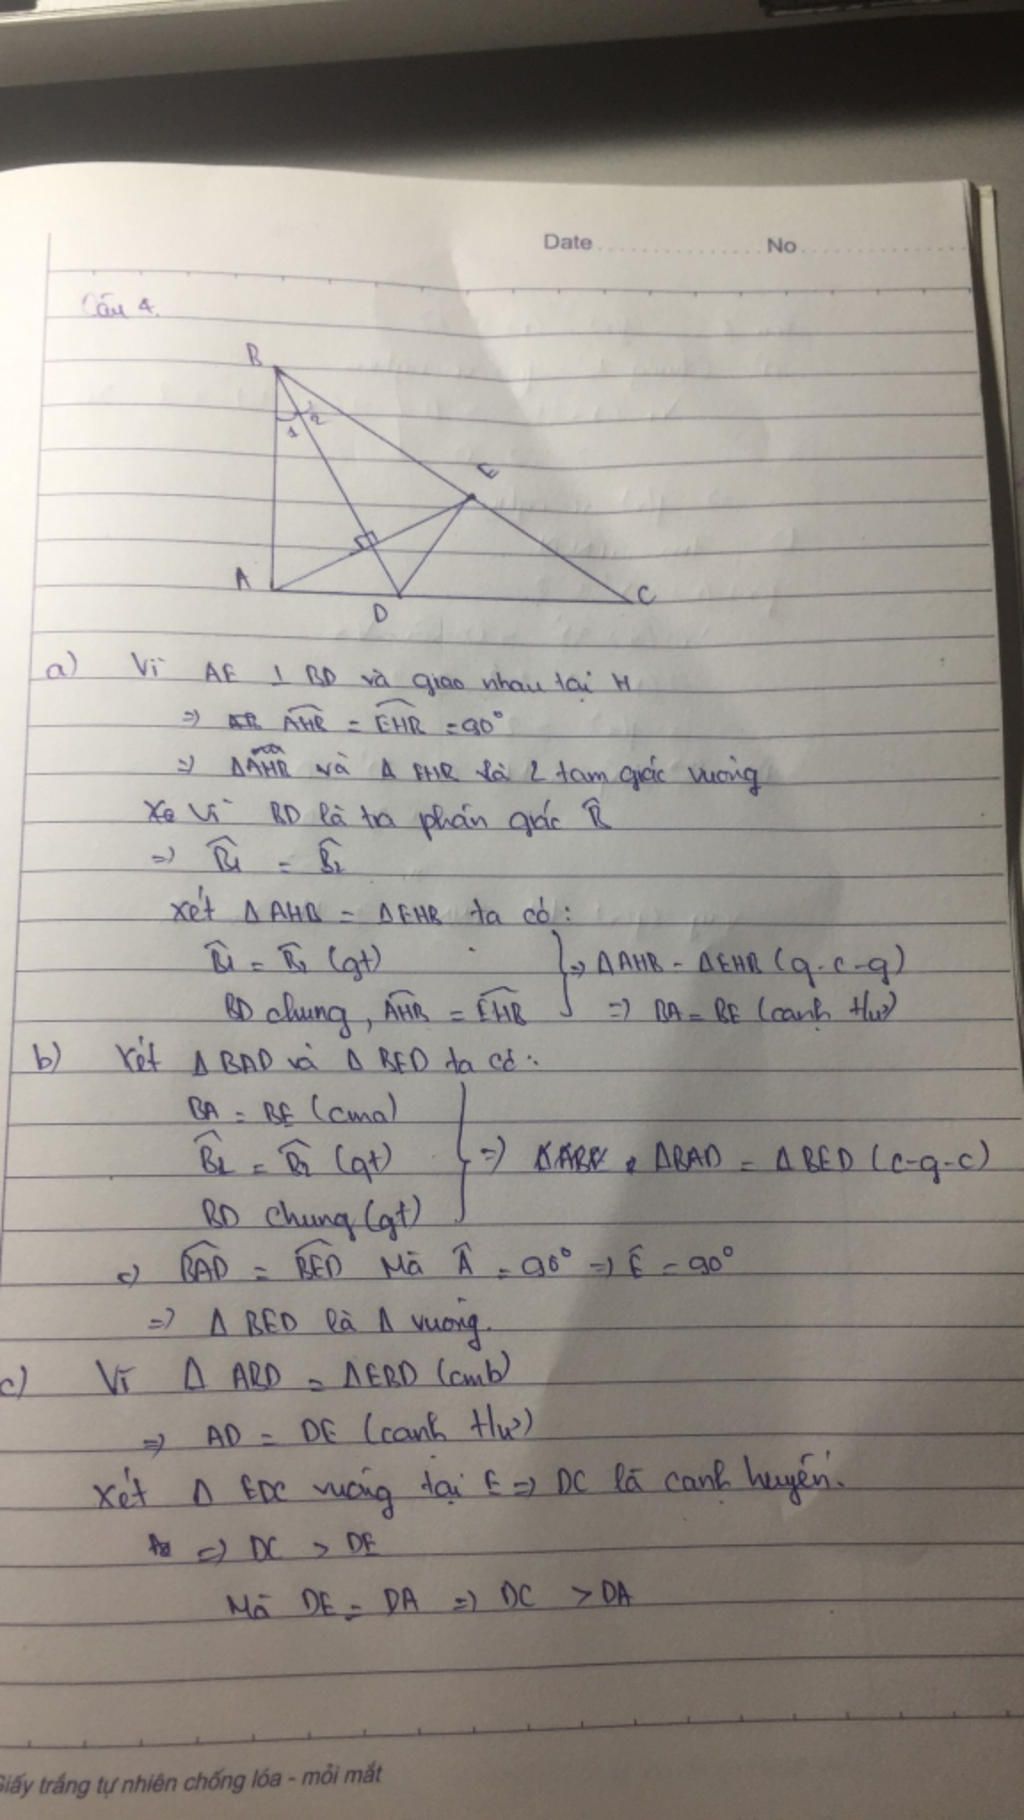 Date No
Câu 4.
B
1 2
E
A
D
C
a) Vì AE ⊥ BD và giao nhau tại H
=> AHB = EHB = 90°
=> ΔAHB và Δ EHB là 2 tam giác vuông
Vì BD là tia phân giác B̂
=> B̂1 = B̂2
Xét Δ AHB = ΔEHB ta có:
B̂1 = B̂2 (gt) } => ΔAHB = ΔEHB (g-c-g)
BD chung, AHB = EHB => BA = BE (cạnh t/ư)
b) Xét Δ BAD và Δ BED ta có:
BA = BE (cma)
B̂1 = B̂2 (gt) } => ΔBAD = ΔBED (c-g-c)
BD chung (gt)
=> BAD = BED Mà Â = 90° => Ê = 90°
=> Δ BED là Δ vuông.
c) Vì Δ ABD = ΔEBD (cmb)
=> AD = DE (cạnh t/ư)
Xét Δ EDC vuông tại E => DC là cạnh huyền.
=> DC > DE
Mà DE = DA => DC > DA
Giấy trắng tự nhiên chống lóa - mỏi mắt